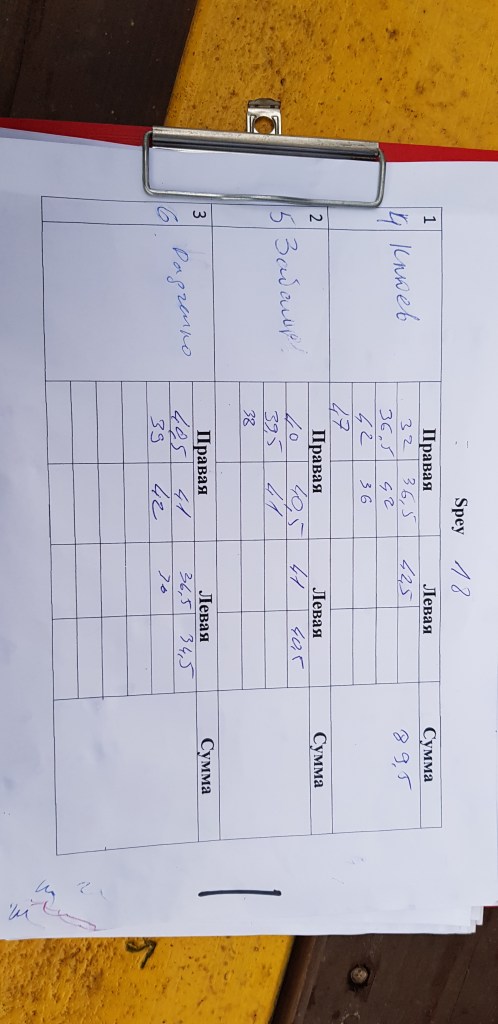 Spey 18
1 Правая Левая Сумма
4 Клюев 32 36,5 42,5 89,5
36,5 42
42 36
47
2 Правая Левая Сумма
5 40 40,5 41 40,5
39,5 41
38
3 Правая Левая Сумма
6. Радченко 40,5 41 36,5 34,5
39 42 30